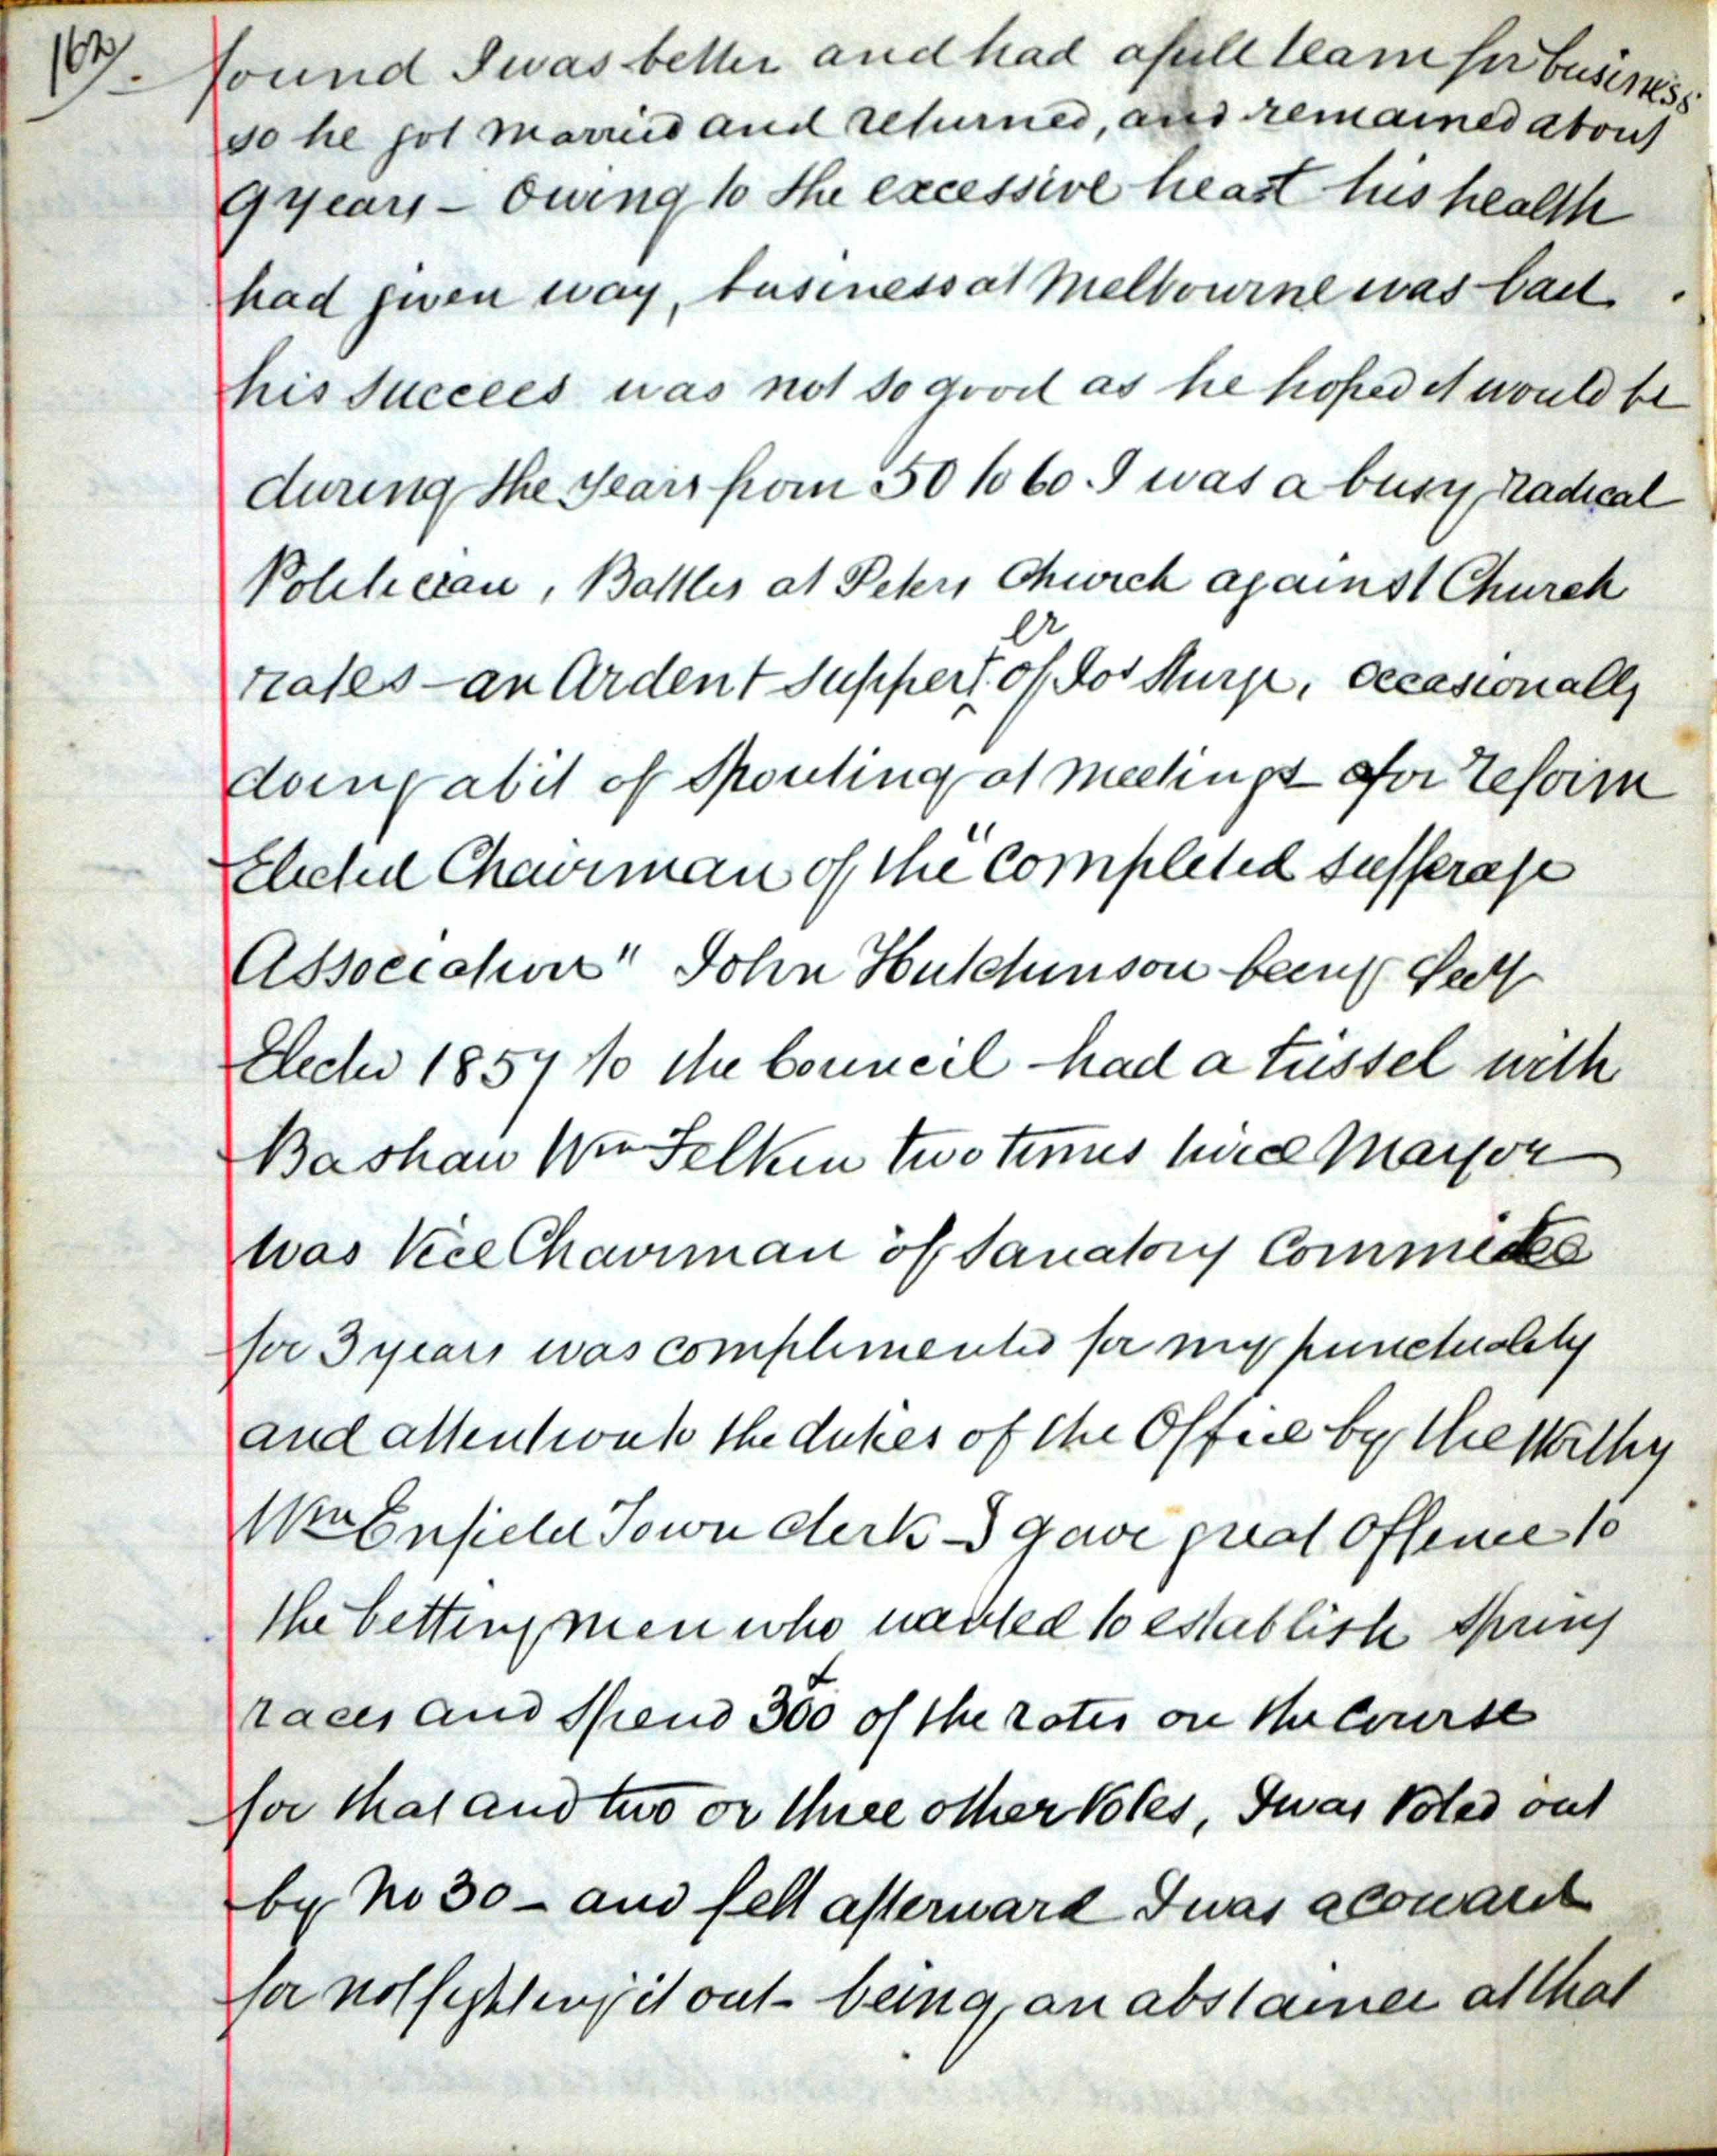 162. found I was better and had a full team for business
so he got married and returned, and remained about
9 years - Owing to the excessive heat his health
had given way, business at Melbourne was bad.
his succees was not so good as he hoped it would be
during the years from 50 to 60 I was a busy Radical
Politician, Battles at Peters Church against Church
rates - an Ardent supperter of Jos Sturge, occasionally
doing a bit of spouting at meetings for reform
Elected Chairman of the "Completed sufferage
Association" John Hutchinson being Secty
Elected 1857 to the Council - had a tussel with
Bashaw Wm Felken two times Mayor
was Vice Chairman of Sanatory Commitee
for 3 years was complimented for my punctuality
and attention to the duties of the Office by the
Wm Enfield Town Clerk - I gave great offence to
the betting men who wanted to establish spring
races and spend £300 of the rates on the Course
for that and two or three other Votes, I was Voted out
by No 30 - and felt afterward I was a coward
for not fighting it out - being an abstainer at that